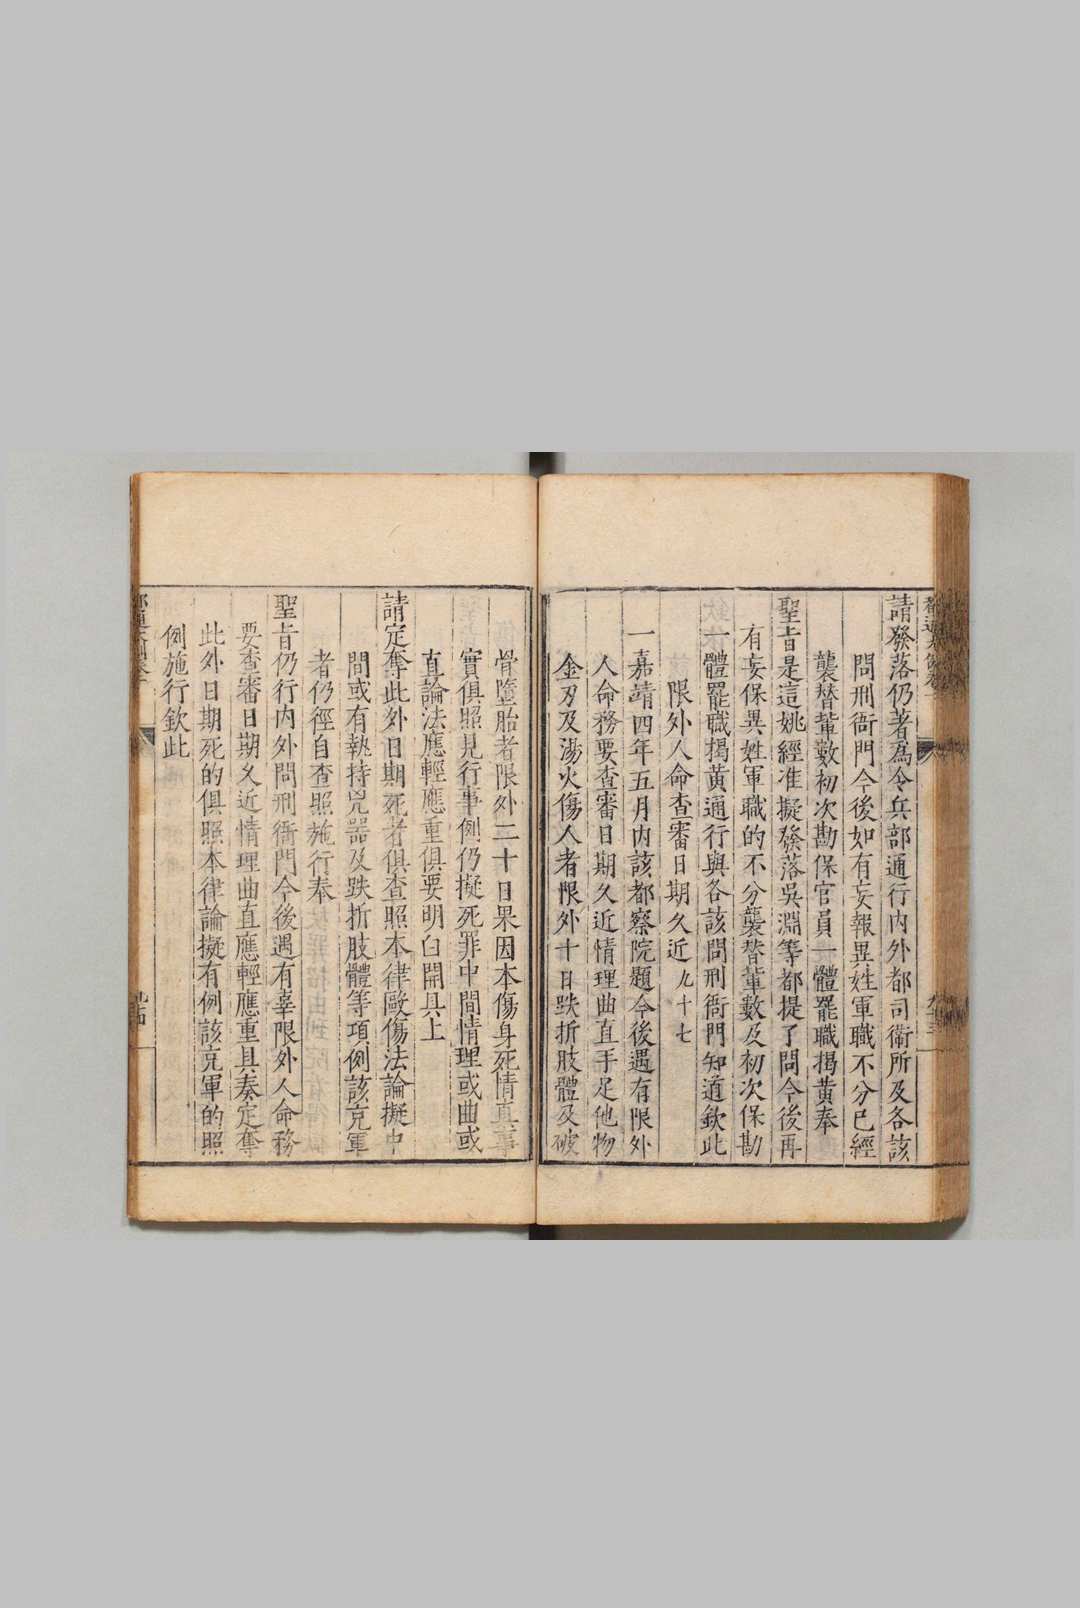 請發落仍著為令兵部通行内外都司衛所及各該
問刑衙門今後如有妄報異姓軍職不分已經
襲替輩數初次勘保官員一體罷職揭黄奉
聖旨是這姚經准擬發落吳淵等都提了問今後再
有妄保異姓軍職的不分襲替輩數及初次保勘
一體罷職揭黄通行與各該問刑衙門知道欽此
限外人命查審日期久近 九十七
一嘉靖四年五月内該都察院題今後遇有限外
人命務要查審日期久近情理曲直手足他物
金刃及湯火傷人者限外十日跌折肢體及破
骨墮胎者限外二十日果因本傷身死情真事
實俱照見行事例仍擬死罪中間情理或曲或
直論法應輕應重俱要明白開具上
請定奪此外日期死者俱查照本律毆傷法論擬中
間或有執持兇器及跌折肢體等項例該充軍
者仍徑自查照施行奉
聖旨仍行内外問刑衙門今後遇有辜限外人命務
要查審日期久近情理曲直應輕應重具奏定奪
此外日期死的俱照本律論擬有例該充軍的照
例施行欽此